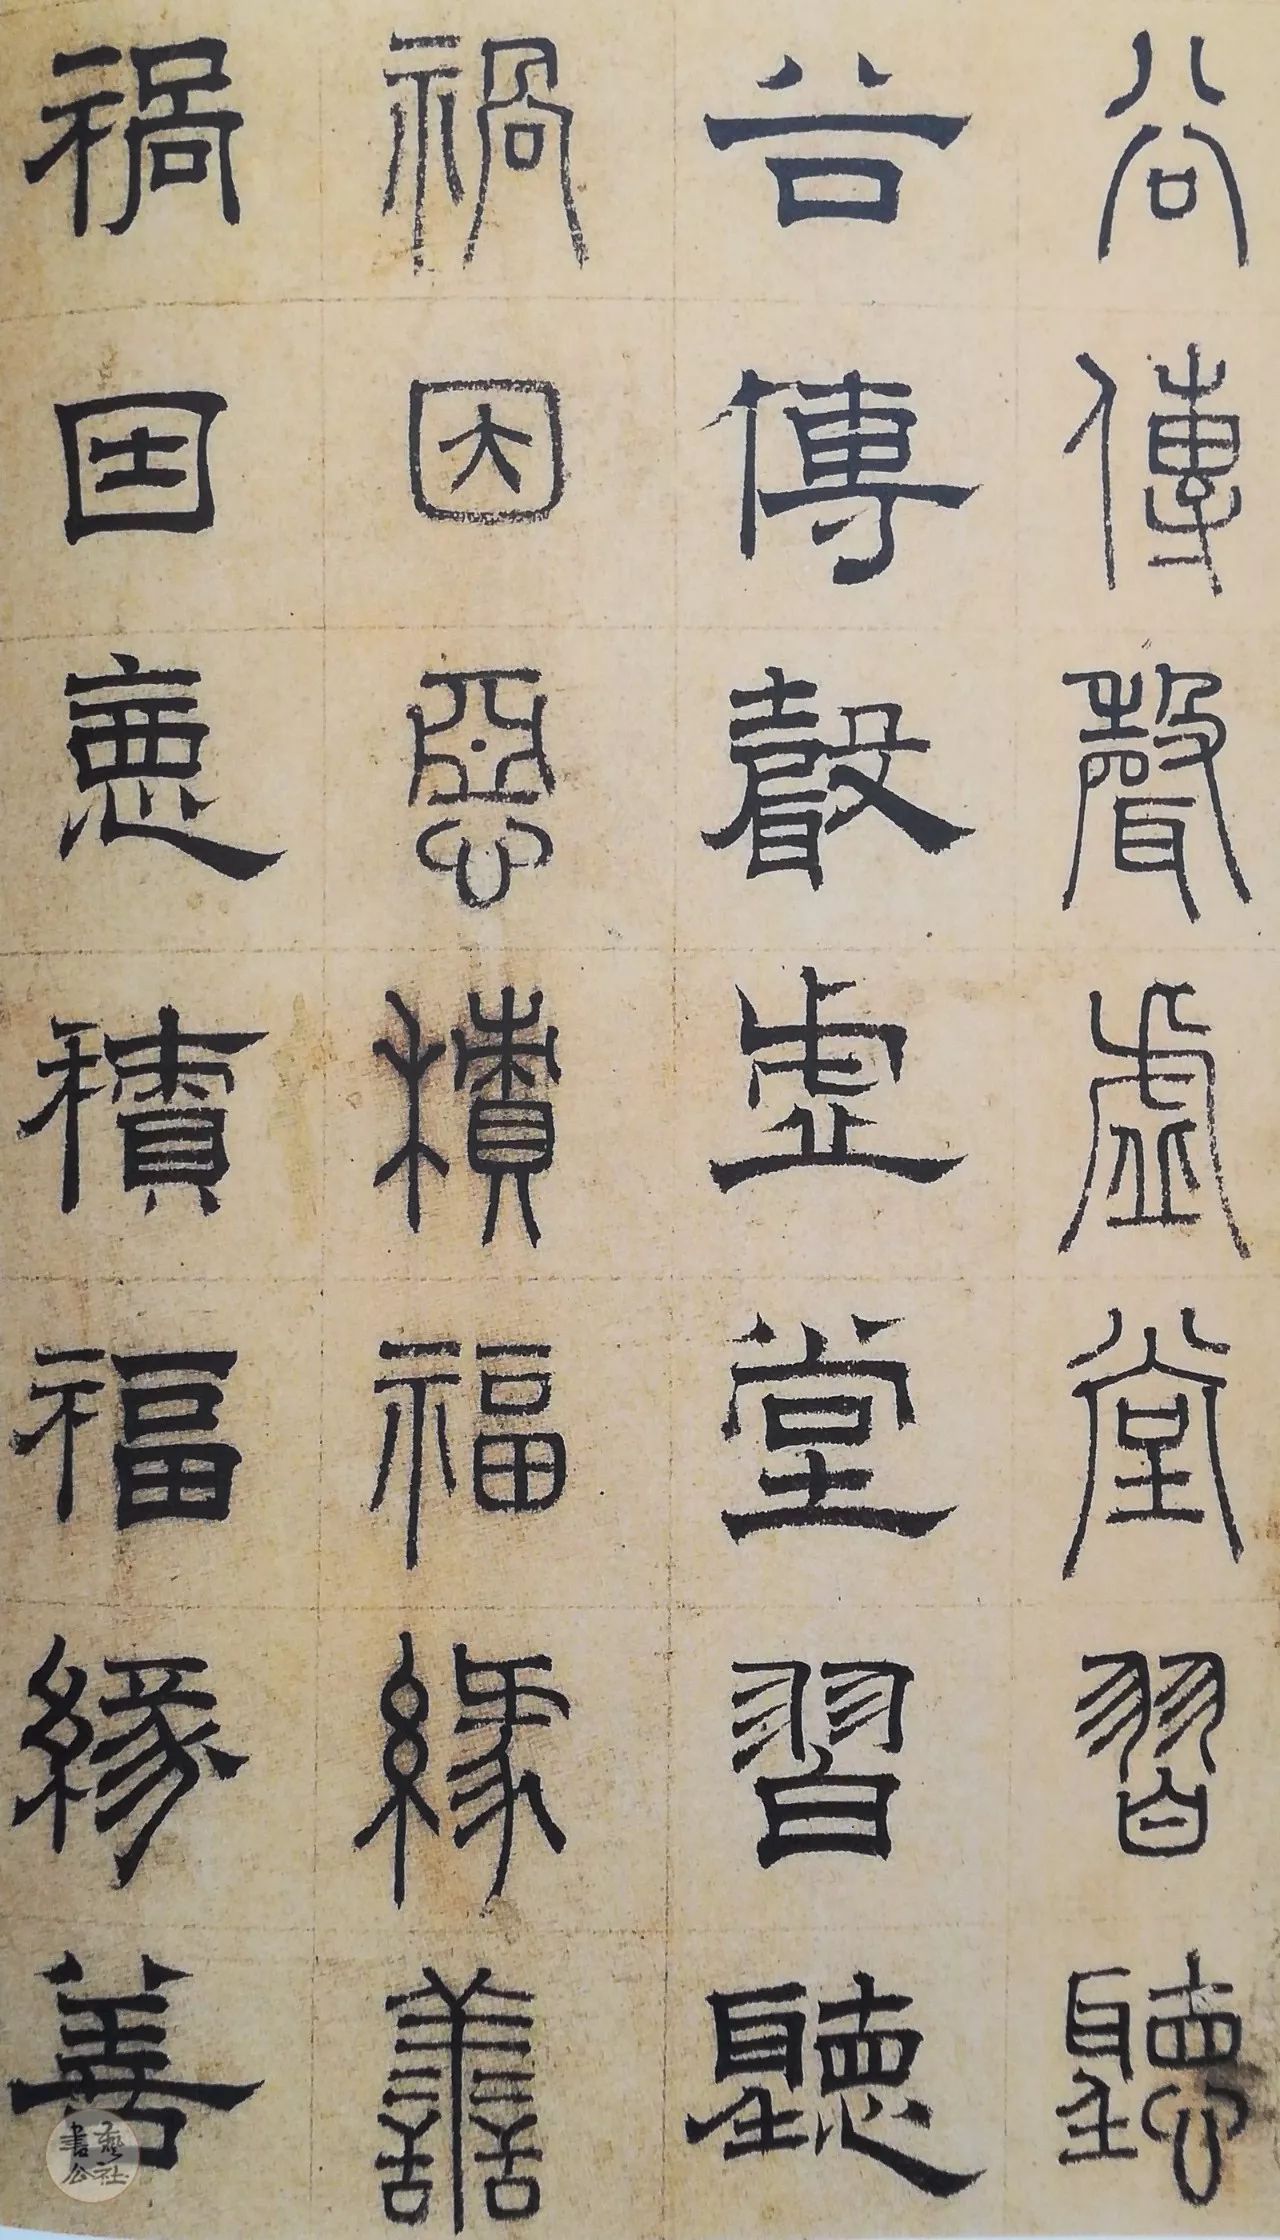 谷傳聲虛堂習聽
谷傳聲虛堂習聽
禍因惡積福緣善
禍因惡積福緣善
書藝公社